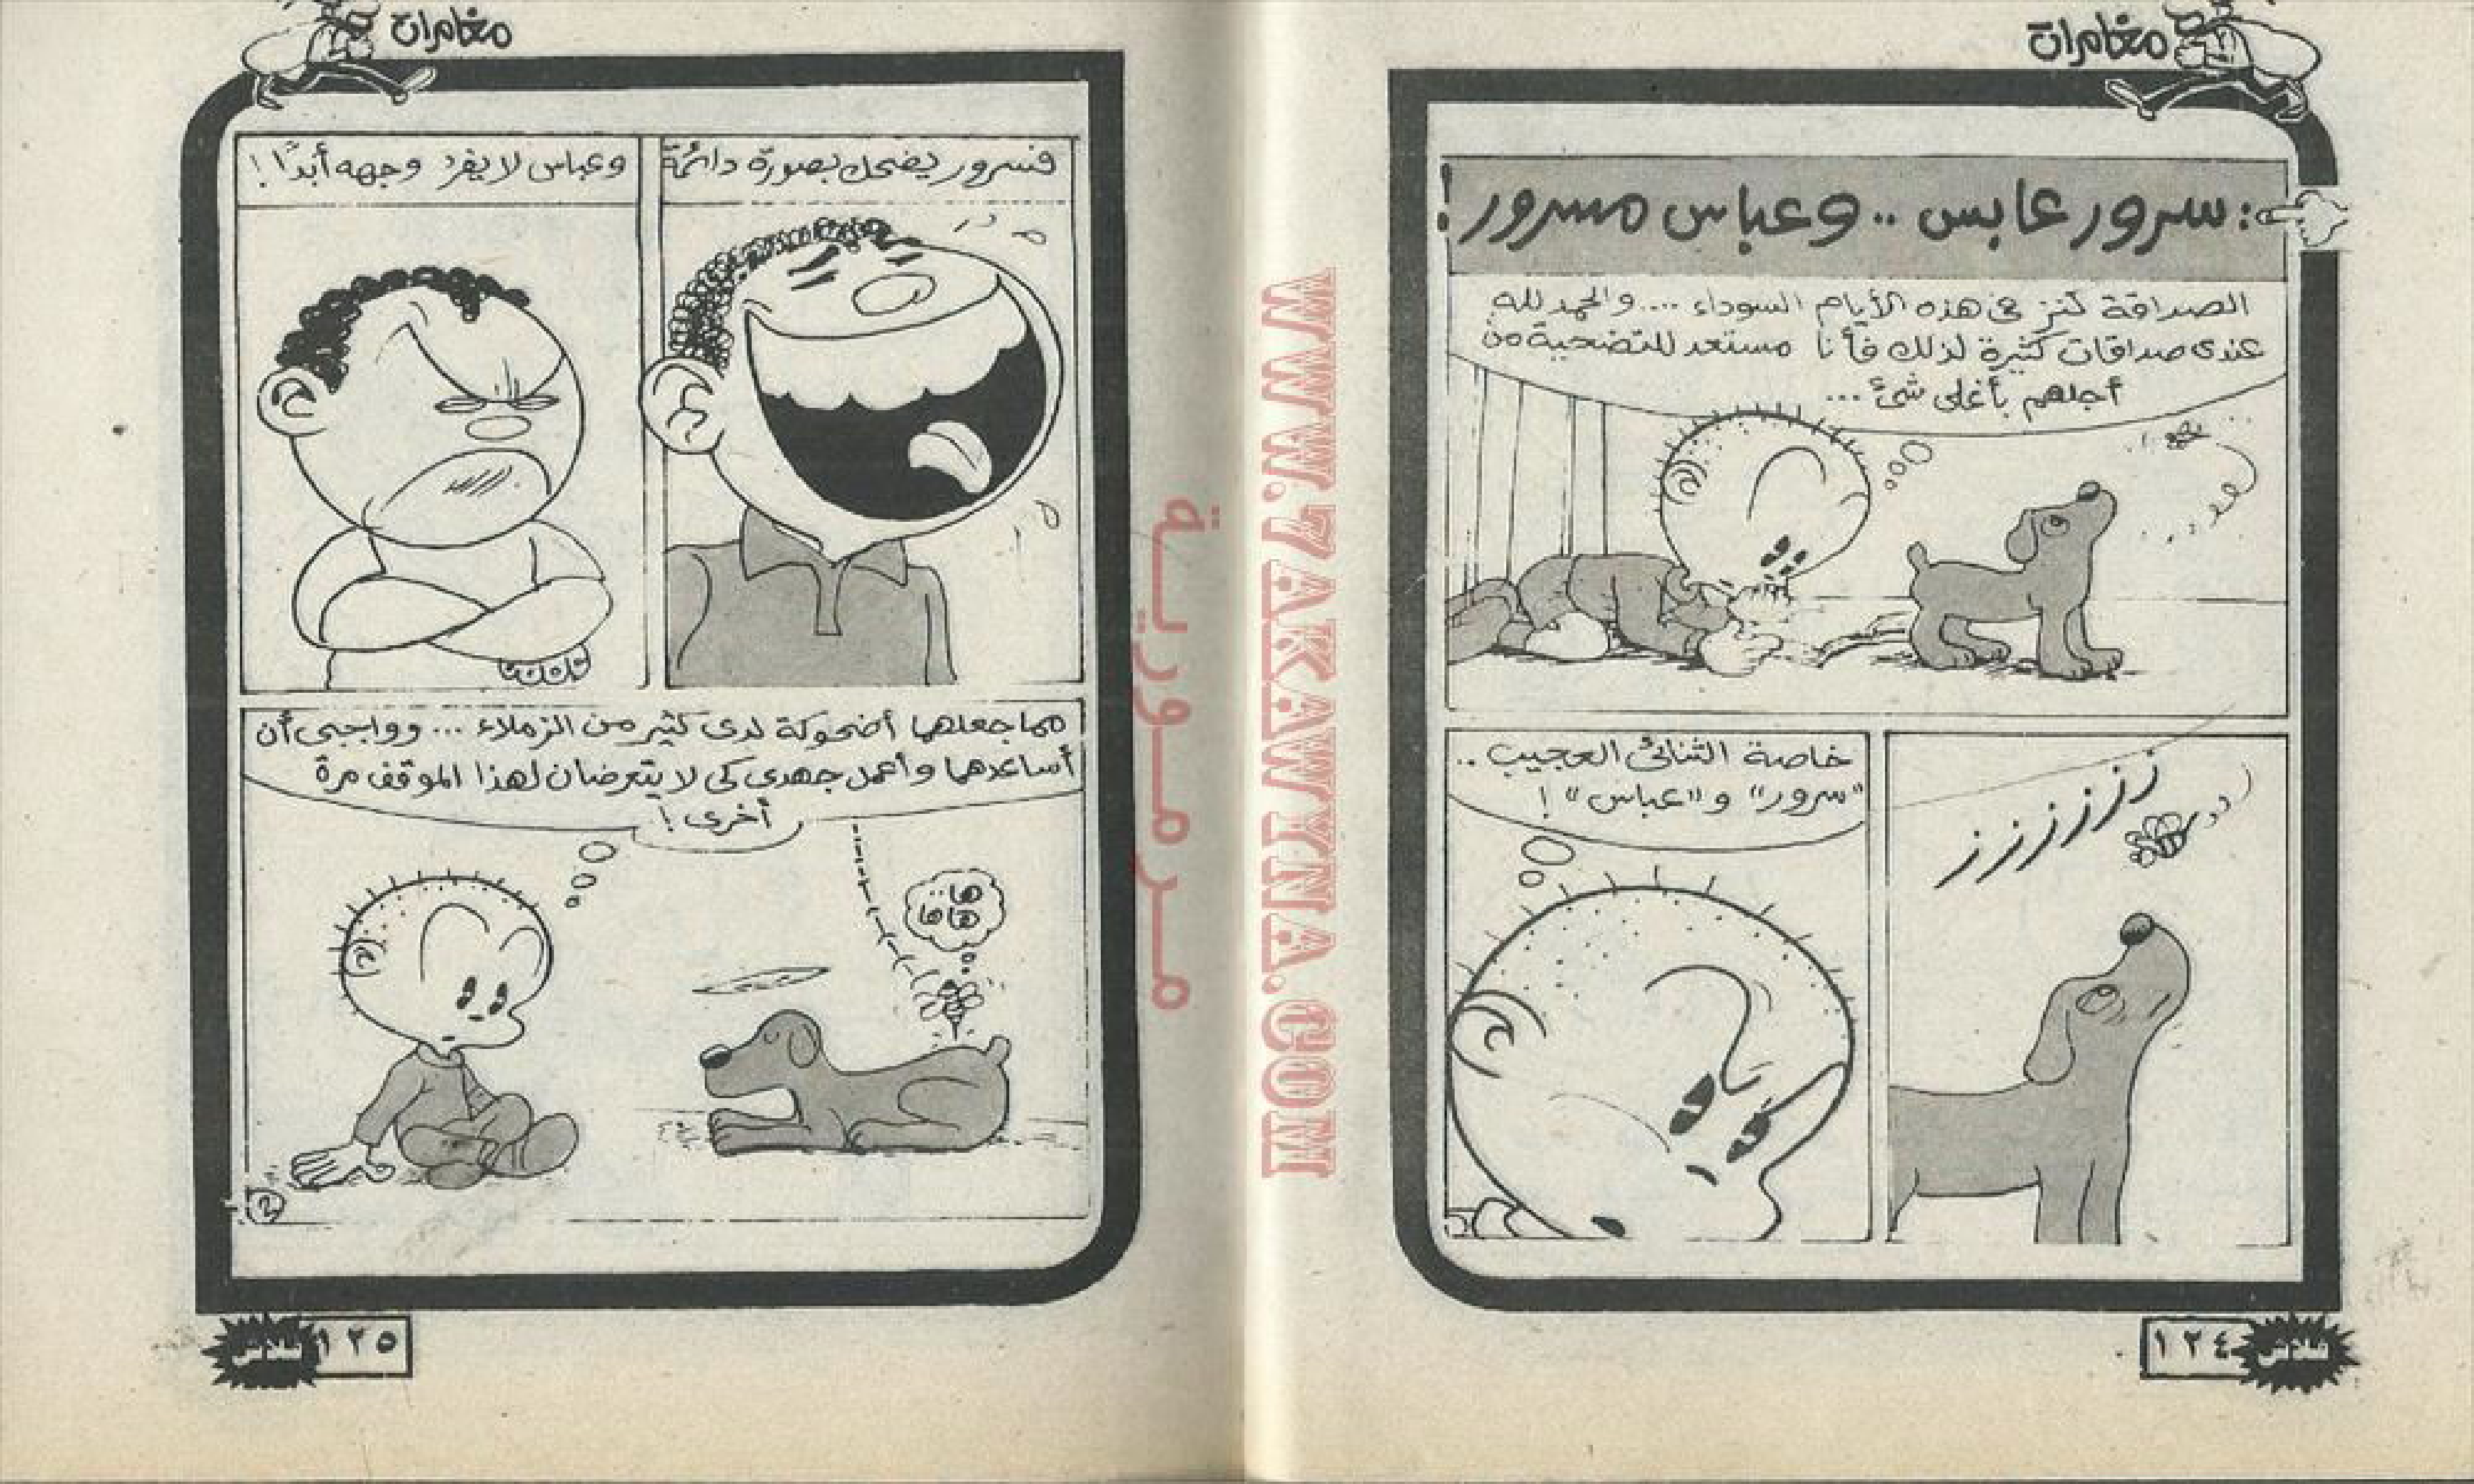 مغامرات
: سرور عابس .. وعباس مسرور !
الصداقة كنز فى هذه الأيام السوداء .... والحمد لله
عندى صداقات كثيرة لذلك فأنا مستعد للتضحية من
أجلهم بأغلى شئ ...
ززززز
خاصة الثنائى العجيب ..
"سرور" و "عباس" !
١٢٤
مغامرات
فسرور يضحك بصورة دائمة
وعباس لا يفرد وجهه أبدًا !
مما جعلهما أضحوكة لدى كثير من الزملاء ... وواجبى أن
أساعدهما وأعمل جهدى كى لا يتعرضان لهذا الموقف مرة
أخرى !
ها
هاها
٢
١٢٥
مرمورية
WWW.7AKAWINA.COM